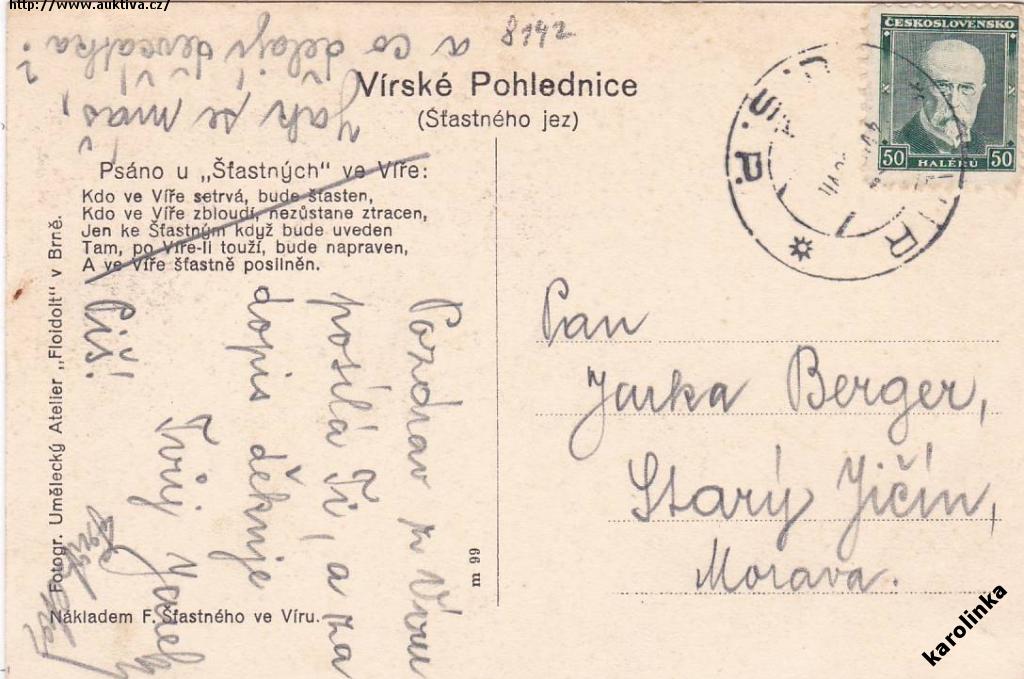 http://www.auktiva.cz/
8142
ČESKOSLOVENSKO
50 HALÉŘŮ 50
Vírské Pohlednice
(Šťastného jez)
Psáno u „Šťastných" ve Víře:
Kdo ve Víře setrvá, bude šťasten,
Kdo ve Víře zbloudí, nezůstane ztracen,
Jen ke Šťastným když bude uveden
Tam, po Víře-li touží, bude napraven,
A ve Víře šťastně posilněn.
Pozdrav z Víru
posílá Ti, a za
dopis děkuje
Tvůj
Piš!
Jak se máš,
a co dělají děvčátka?
Pan
Jarka Berger,
Starý Jičín,
Morava.
Fotogr. Umělecký Atelier „Floidolt" v Brně.
Nákladem F. Šťastného ve Víru.
m 99
VÍR
karolinka